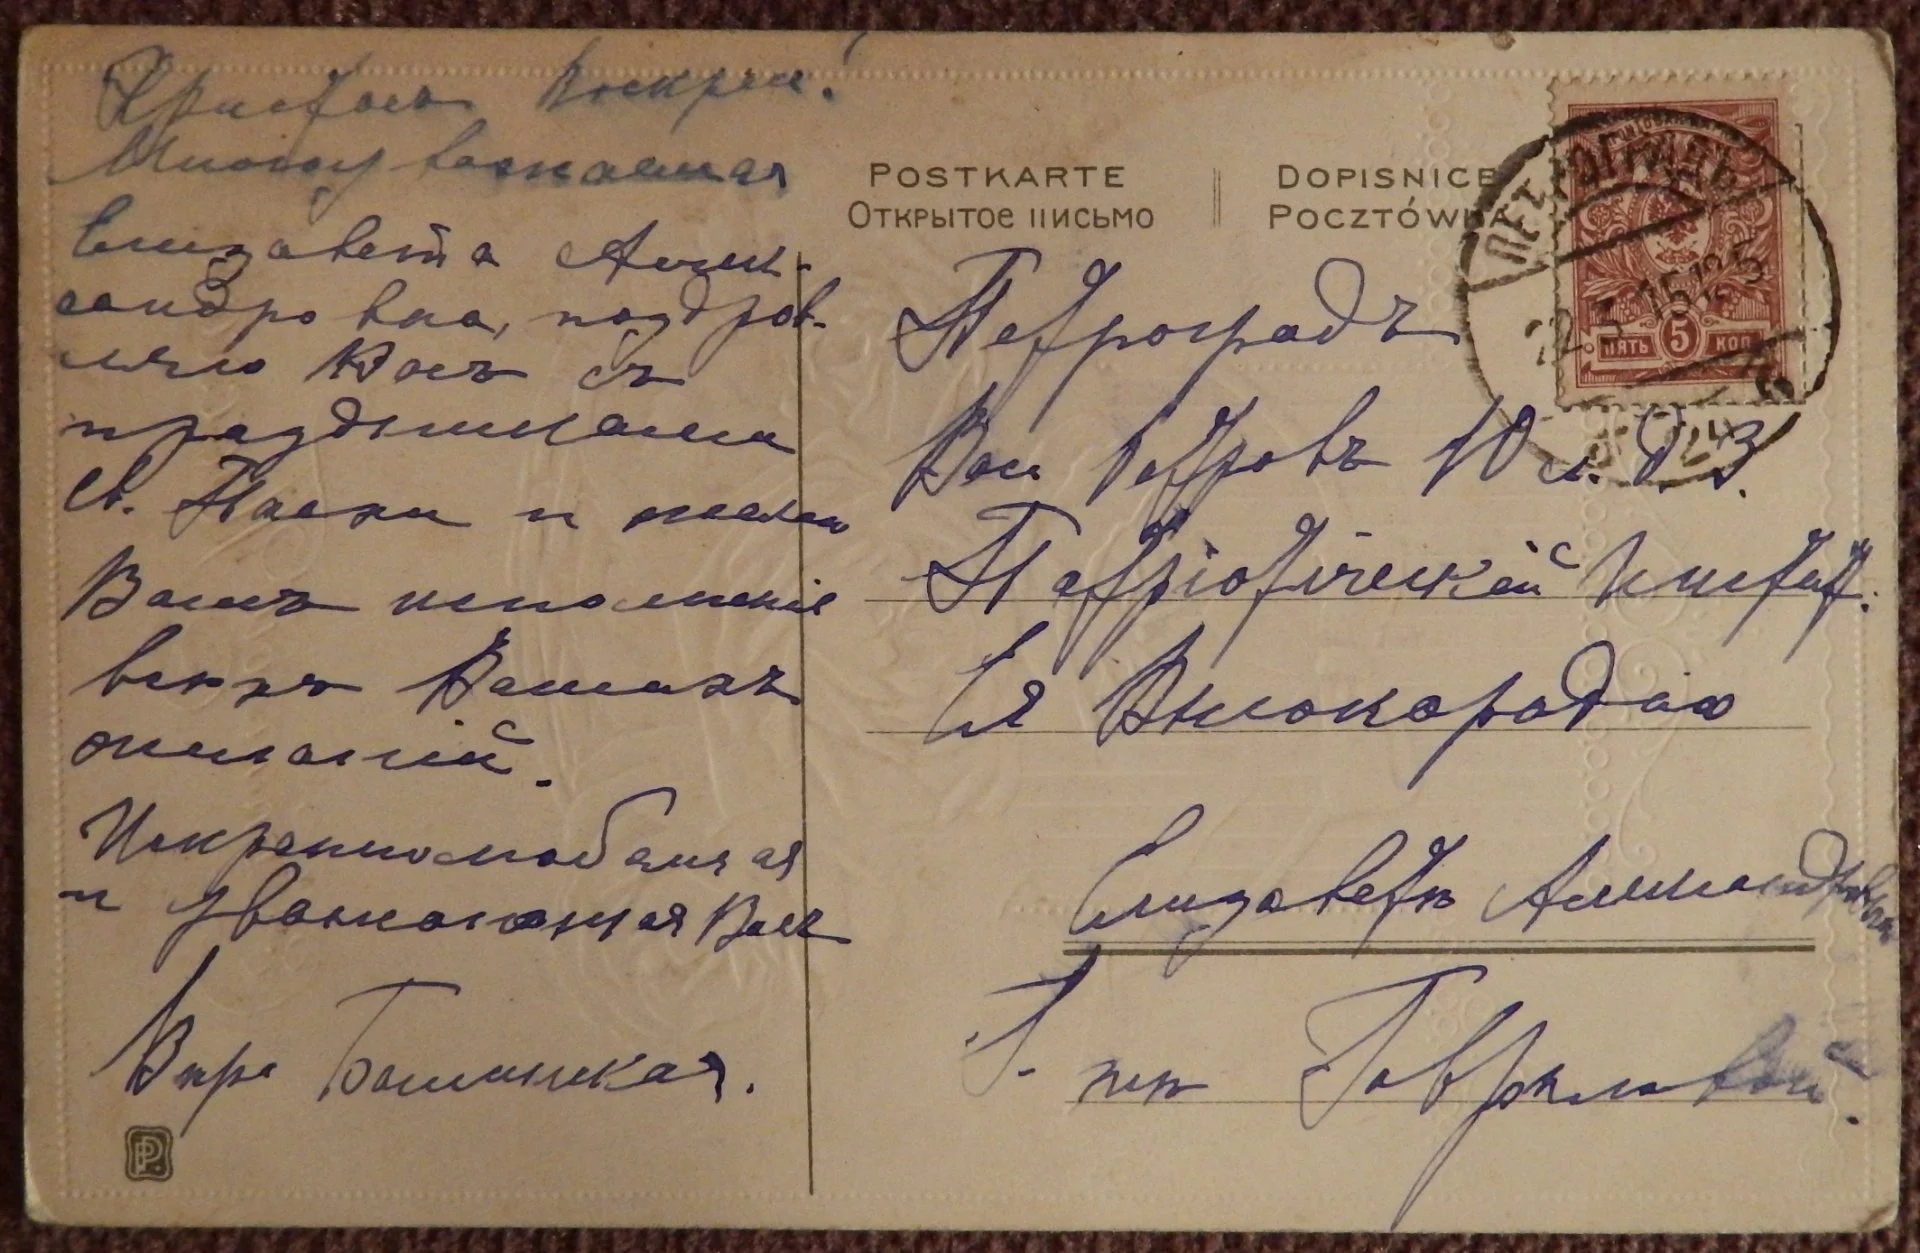 Христосъ Воскресе!
Многоуважаемая
Елизавета Алек-
сандровна, поздрав-
ляю Васъ съ
праздниками
Св. Пасхи и желаю
Вамъ исполненія
всѣхъ Вашихъ
желаній.
Искреннолюбящая
и уважающая Васъ
Вѣра
POSTKARTE
ОТКРЫТОЕ ПИСЬМО
DOPISNICE
POCZTÓWKA
ПЕТРОГРАДЪ
22.3.15.12
5
ПЯТЬ 5 КОП
Петроградъ
Вас. Островъ 10 л. д.
Патріотическій Инстит.
Ея Высокородію
Елизаветѣ Александровнѣ
Г-жѣ Гавриловой.